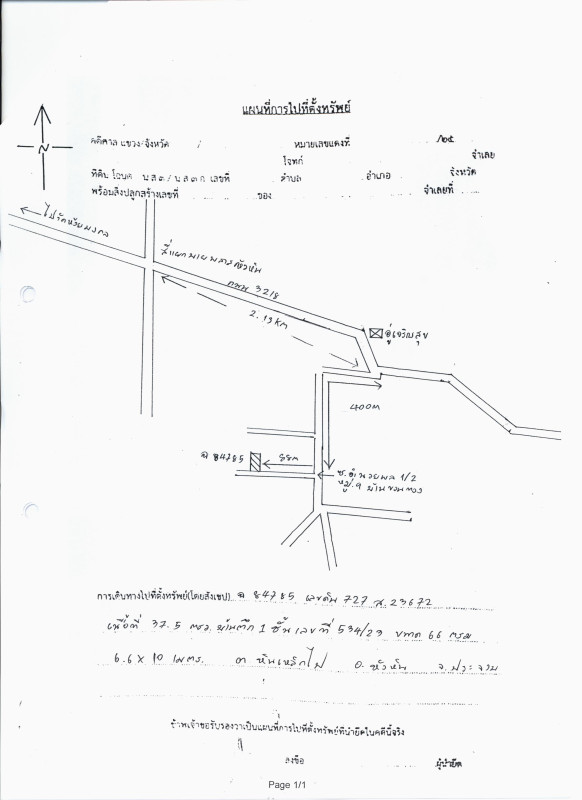 แผนที่การไปที่ตั้งทรัพย์
คดีศาล แขวง/จังหวัด หมายเลขแดงที่ /๒๕
โจทก์ จำเลย
ที่ดิน โฉนด น.ส.๓/น.ส.๓ ก. เลขที่ ตำบล อำเภอ จังหวัด
พร้อมสิ่งปลูกสร้างเลขที่ ของ จำเลยที่
N
ไปวัดห้วยมงคล
สี่แยกบายพาสหัวหิน
ถนน 3218
2.19 KM
อู่เจริญสุข
400M
ฉ 84785
88M
ซ.อำนวยผล 1/2
หมู่ 9 บ้าน
การเดินทางไปที่ตั้งทรัพย์(โดยสังเขป) ฉ 84785 เลขดิน 727 ส. 23672
เนื้อที่ 37.5 ตรว. บ้านตึก 1 ชั้น เลขที่ 534/23 ขนาด 66 ตรม
6.6 X 10 เมตร. ต. หินเหล็กไฟ อ. หัวหิน จ. ประจวบ
ข้าพเจ้าขอรับรองว่าเป็นแผนที่การไปที่ตั้งทรัพย์ที่นำยึดในคดีนี้จริง
ลงชื่อ ผู้นำยึด
Page 1/1